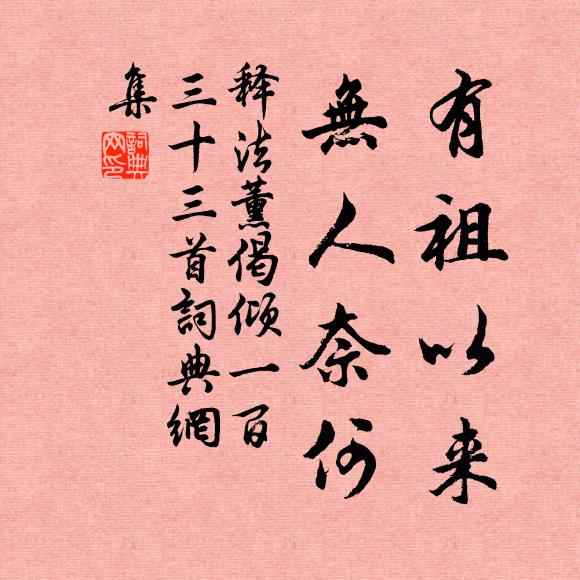 有祖以来
無人奈何
释法薰偈倾一百
三十三首詞典網
集
詞典網印